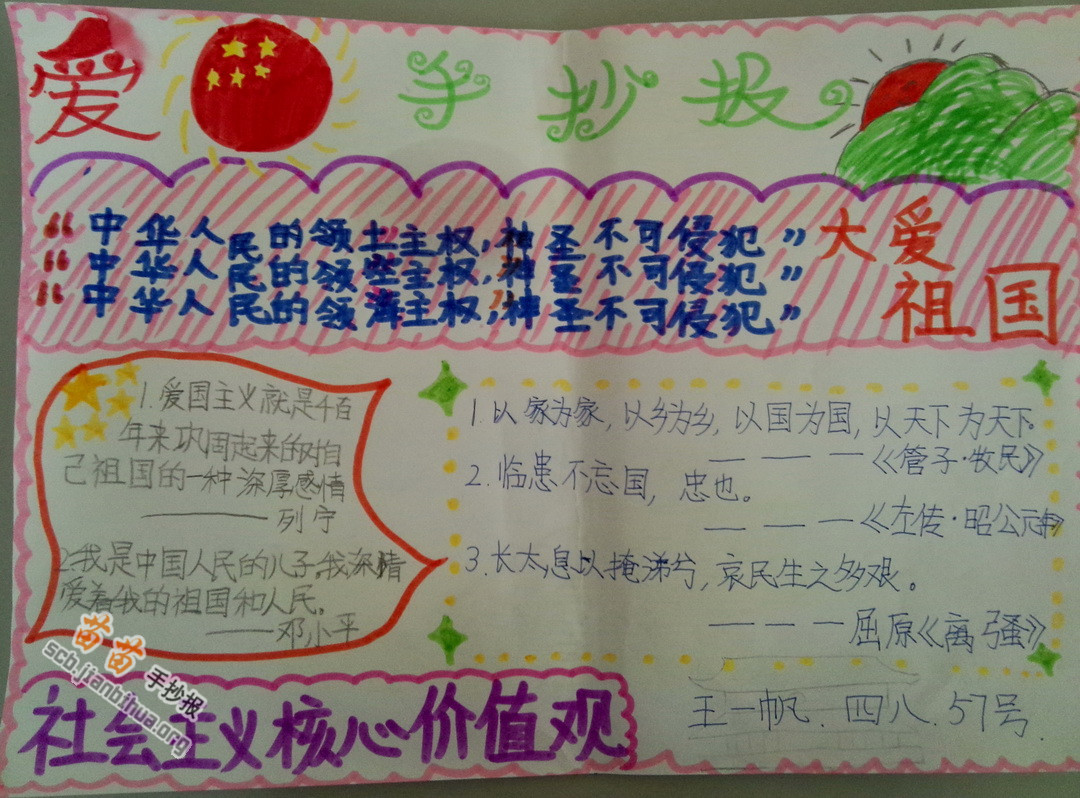 爱 手抄报
“中华人民的领土主权,神圣不可侵犯”
“中华人民的领空主权,神圣不可侵犯”
“中华人民的领海主权,神圣不可侵犯”
大爱
祖国
1.爱国主义就是千百
年来巩固起来的对自
己祖国的一种深厚感情
———列宁
2.我是中国人民的儿子。我深情
爱着我的祖国和人民。
——邓小平
1.以家为家,以乡为乡,以国为国,以天下为天下。
————《管子·牧民》
2.临患不忘国,忠也。
————《左传·昭公元年》
3.长太息以掩涕兮,哀民生之多艰。
————屈原《离骚》
社会主义核心价值观
王一帆.四八.57号.
苗苗手抄报
scb.jianbihua.org